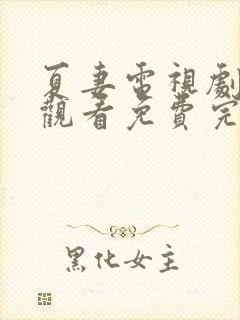 夏妻電視劇
觀看免費完
黑化女主